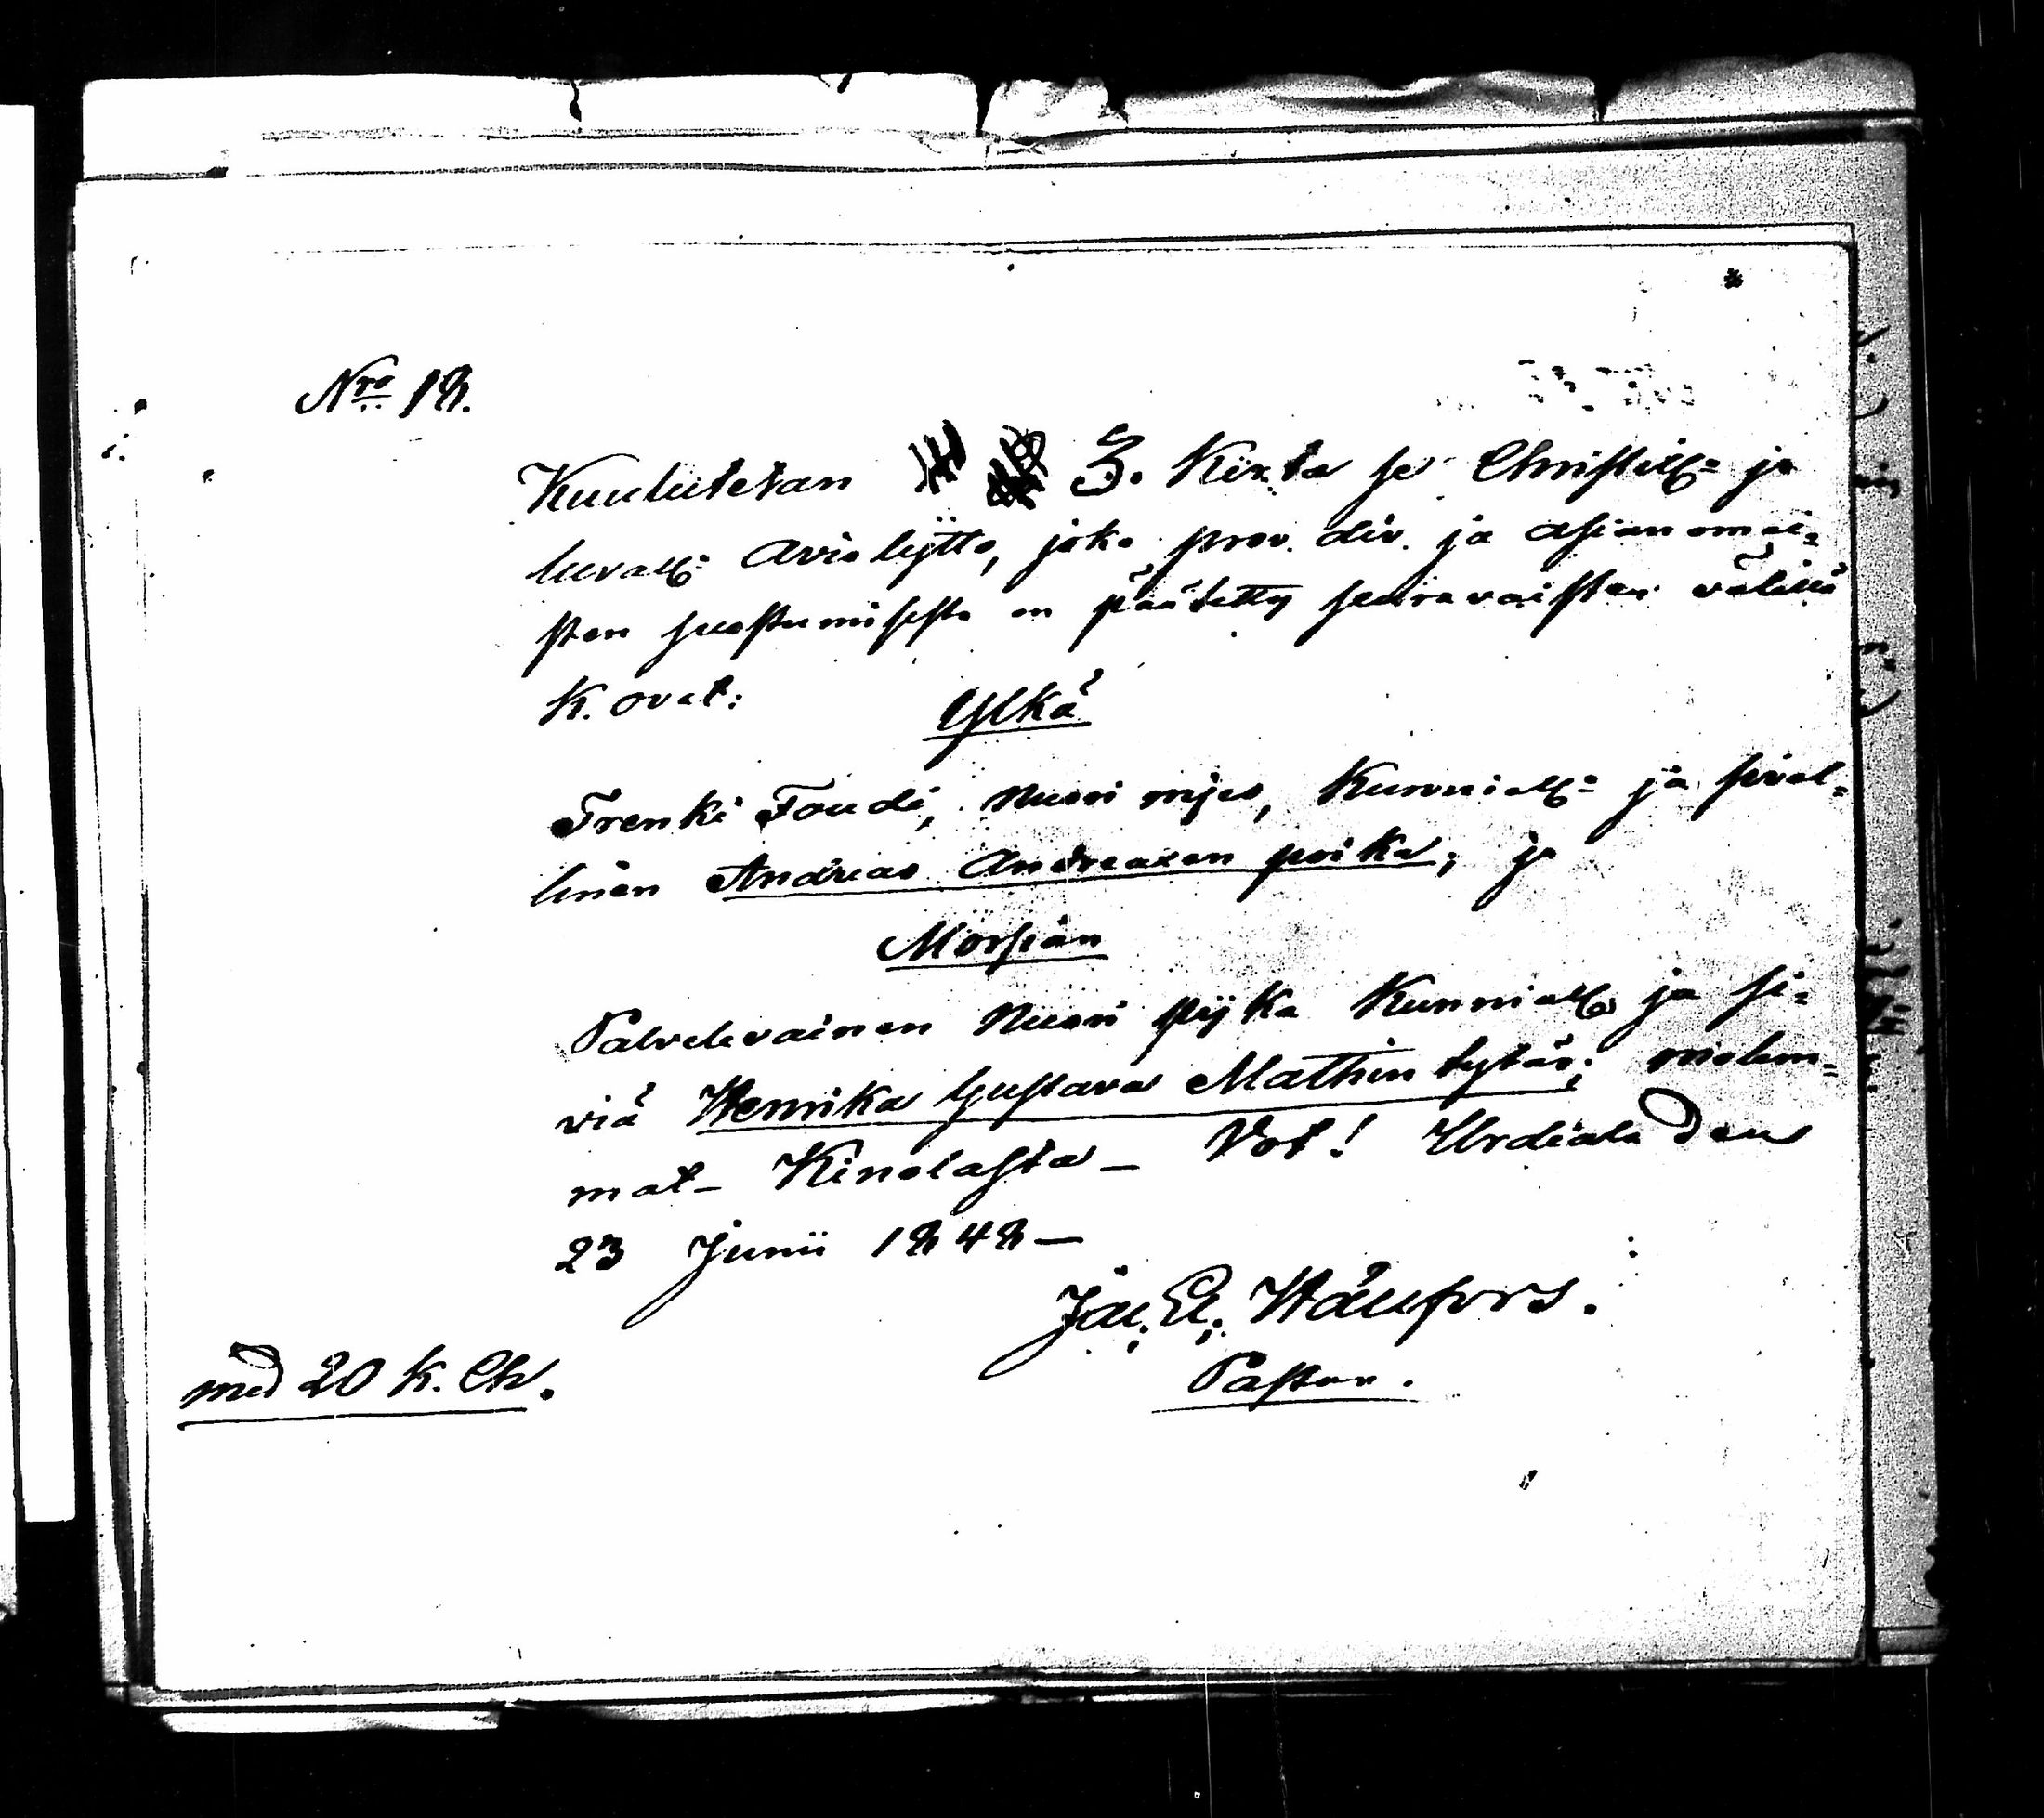 Nro 18.
Kuulutetan 3. Kerta se Christill: ja
luvall: Avioliitto, joka prov. div. ja asianomai=
sten suostumisesta on päätetty seuravaisten välillä
K. ovat:
Ylkä
Trenki Foudi, Nuori mies, Kunniall: ja sivol=
linen Andreas Andreaxen poika, ja
Morsian
Palvelevainen Nuori pijka Kunniall: ja si=
viä Henrika Gustava Mathin tytär; molem=
mat - Kinolasta - Vot! Urdiala den
23 Junii 1848 -
Jac. El. Häufors.
Pastor.
med 20 K. Ch.